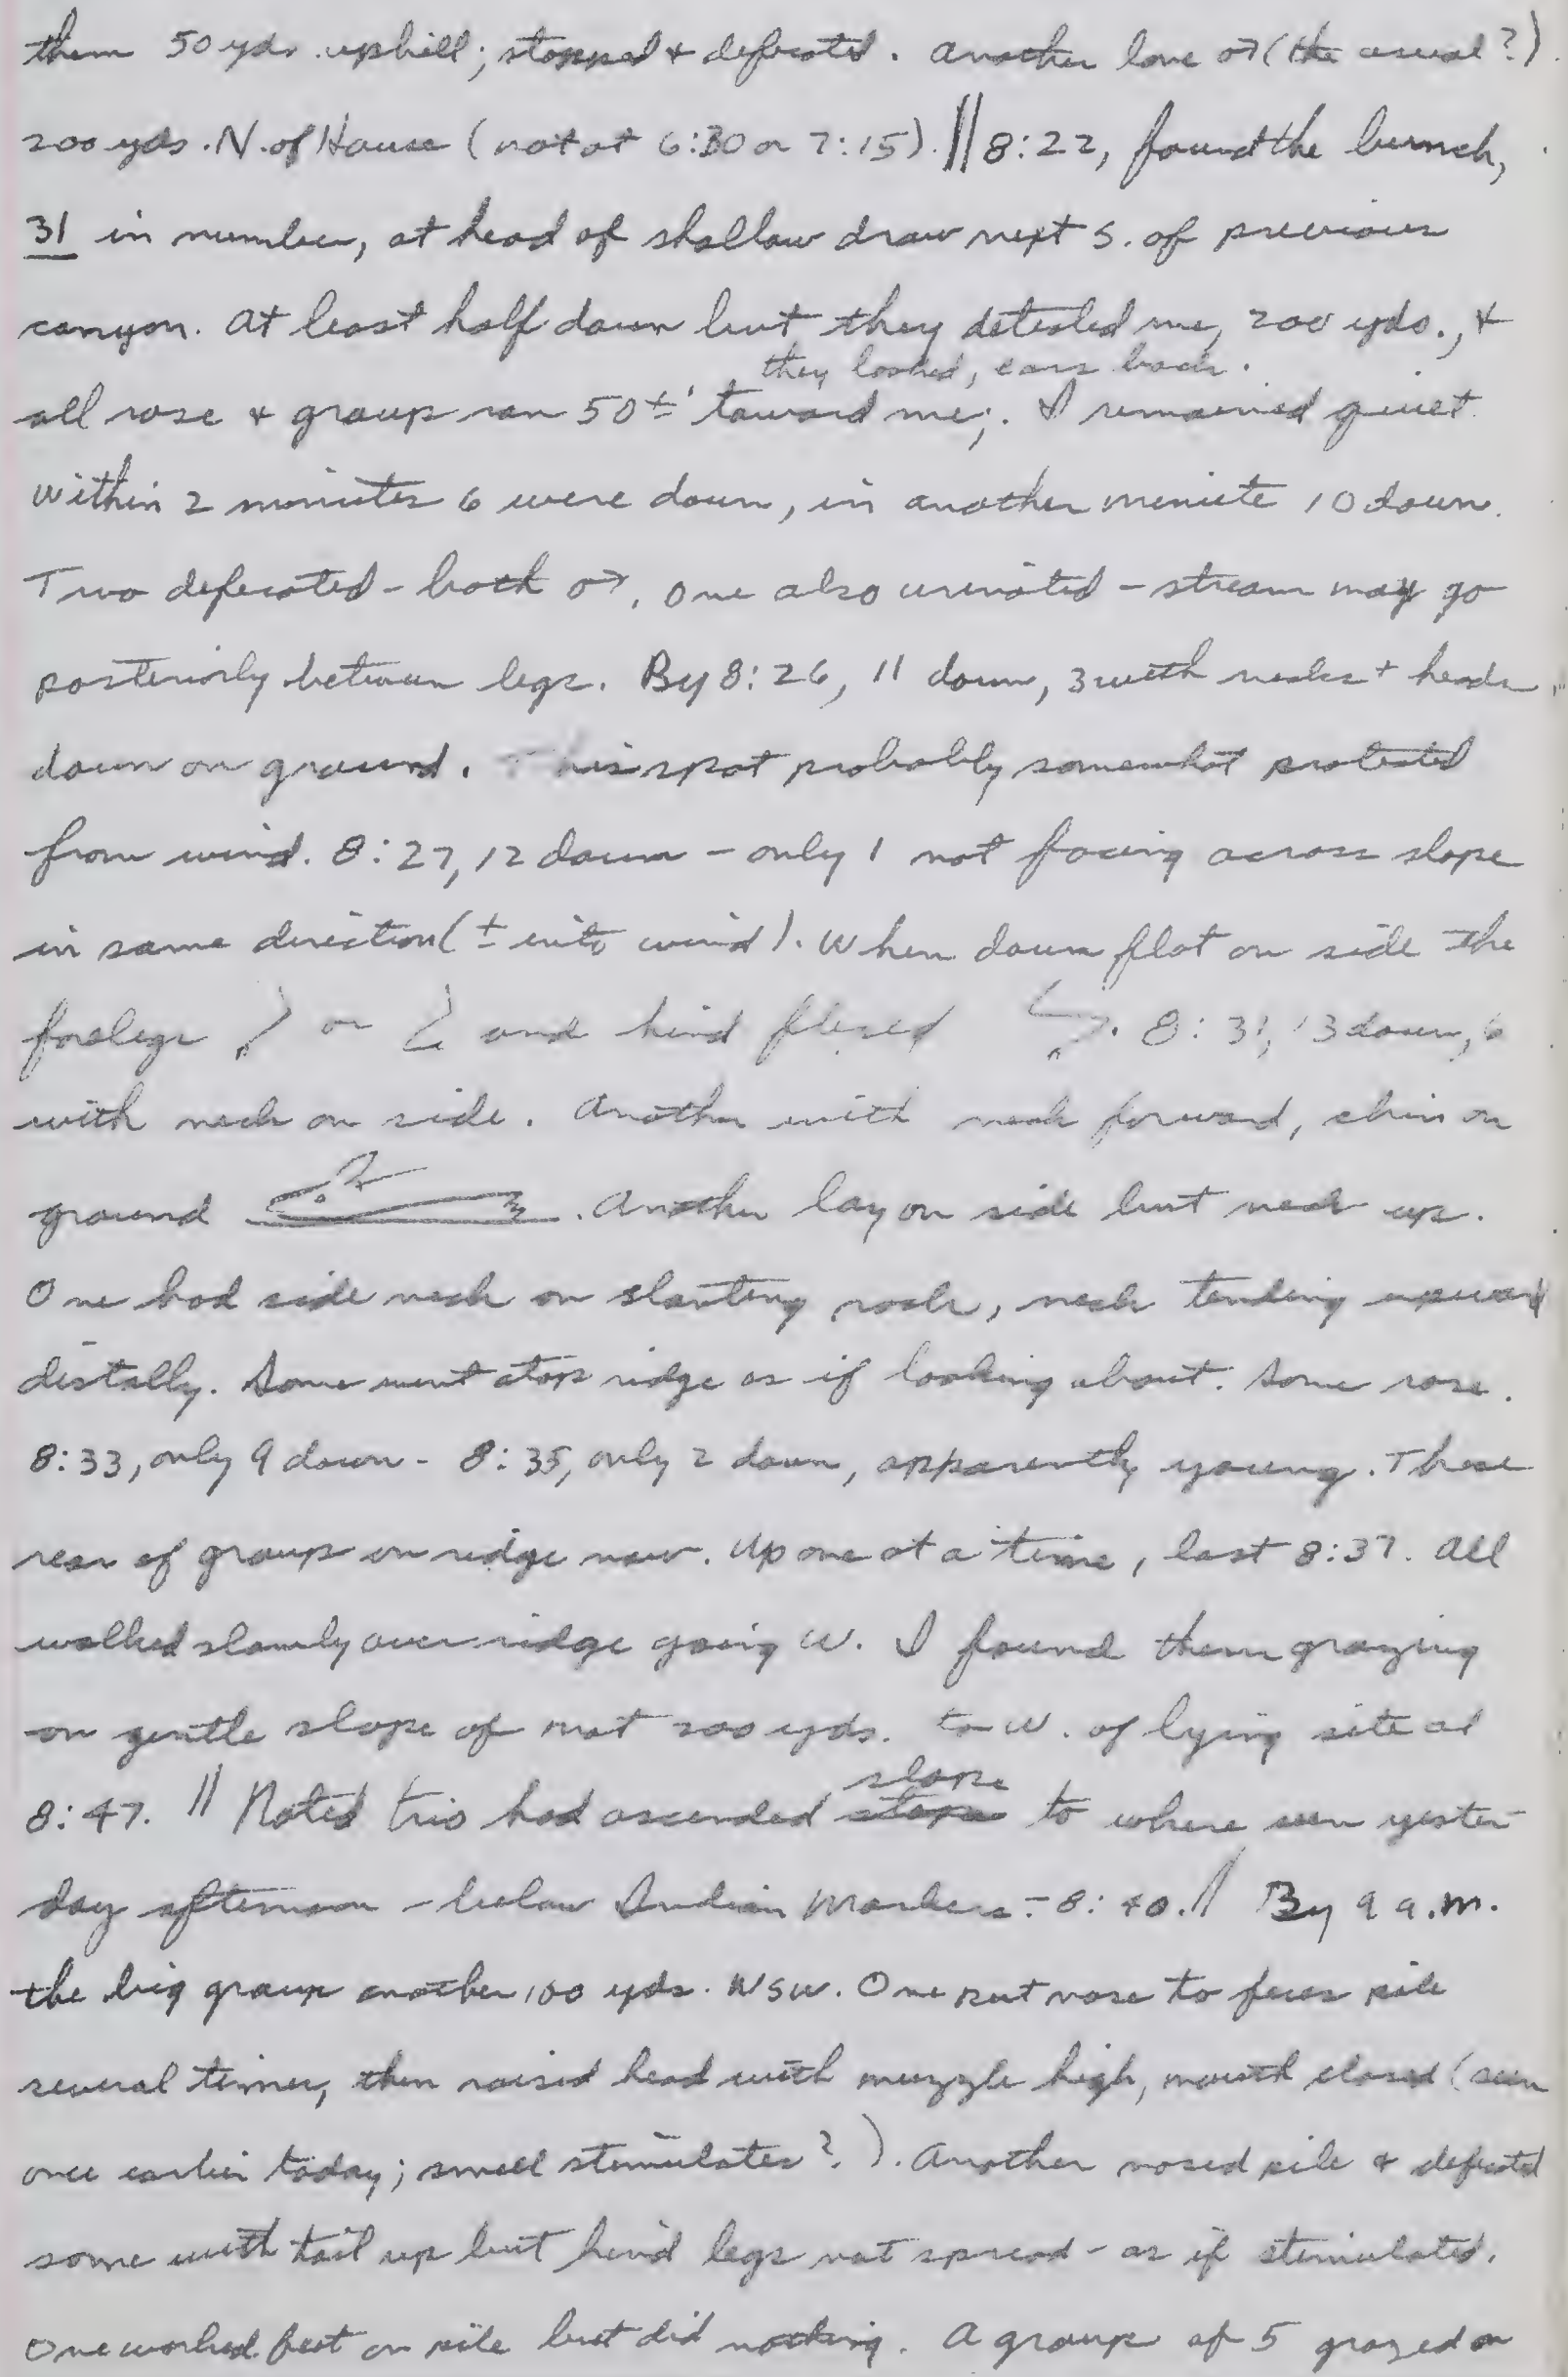 them 50 yds. uphill; stopped & defecated. Another lone ♂ (the usual?)
200 yds. N. of House (not at 6:30 or 7:15). || 8:22, found the bunch,
31 in number, at head of shallow draw next S. of previous
canyon. At least half down but they detected me, 200 yds., &
they looked, ears back.
all rose & group ran 50±' toward me;. I remained quiet.
Within 2 minutes 6 were down, in another minute 10 down.
Two defecated - both ♂, one also urinated - stream may go
posteriorly between legs. By 8:26, 11 down, 3 with necks + heads
down on ground. This spot probably somewhat protected
from wind. 8:27, 12 down - only 1 not facing across slope
in same direction (± into wind). When down flat on side the
forelegs or and hind flexed . 8:31, 13 down, 6
with neck on side. Another with neck forward, chin on
ground . Another lay on side but neck up.
One had side neck on slanting rock, neck tending upward
distally. Some went atop ridge as if looking about. Some rose.
8:33, only 9 down - 8:35, only 2 down, apparently young. These
rear of group on ridge now. Up one at a time, last 8:37. All
walked slowly over ridge going W. I found them grazing
on gentle slope of mat 200 yds. to W. of lying site at
slope
8:47. || Noted trio had ascended to where seen yester-
day afternoon - below Indian Markers - 8:40. || By 9 a.m.
the big group another 100 yds. WSW. One put nose to feces pile
several times, then raised head with muzzle high, mouth closed (seen
once earlier today; smell stimulates?). Another nosed pile & defecated
some with tail up but hind legs not spread - as if stimulated.
One worked feet on pile but did nothing. A group of 5 grazed on